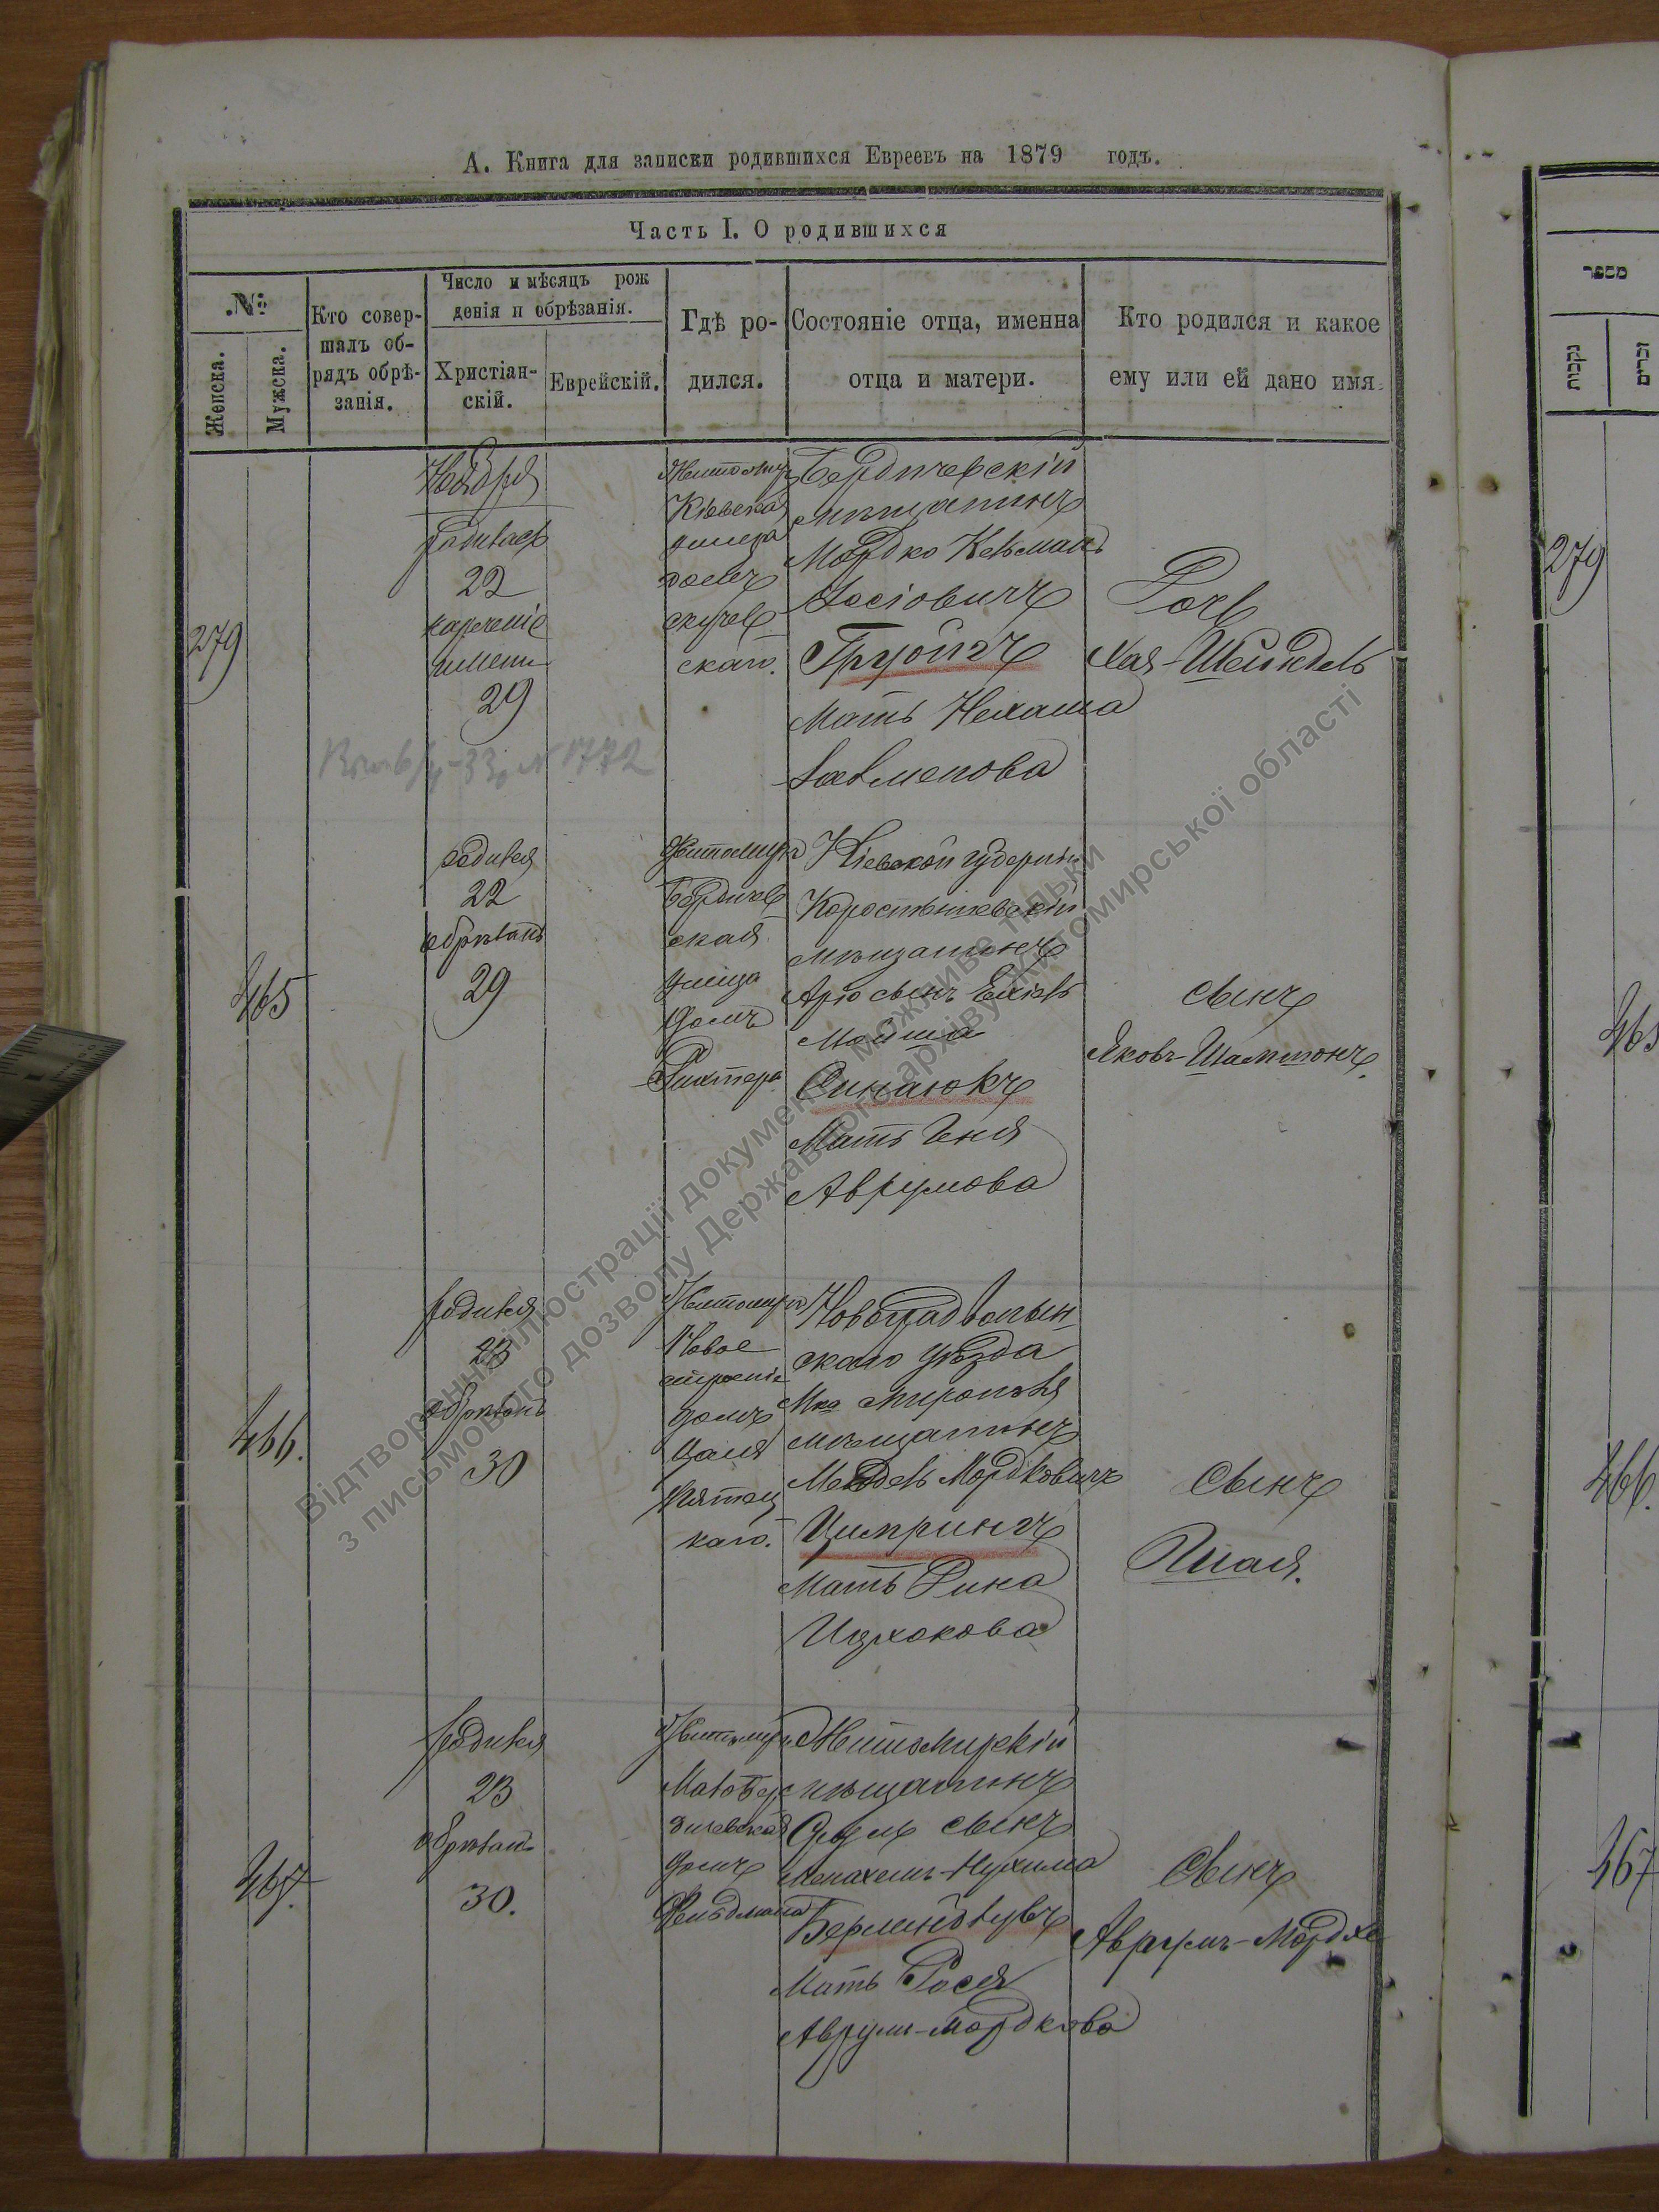 А. Книга для записки родившихся Евреевъ на 1879 годъ.
Часть I. О родившихся
№
Женска.
Мужска.
Кто совер-
шалъ об-
рядъ обрѣ-
занія.
Число и мѣсяцъ рож
денія и обрѣзанія.
Христіан-
скій.
Еврейскій.
Гдѣ ро-
дился.
Состояніе отца, именна
отца и матери.
Кто родился и какое
ему или ей дано имя.
279
Ноября
родилась
22
нареченіе
имени
29
Житомиръ
Кіевская
улица
домъ
скаго.
Бердичевскій
мѣщанинъ
Мордко Кельманъ
Іосіовичъ
Мать Нехама
Залменова
Дочь
Хая-Шейндель
№ 1772
465
родился
22
обрѣзанъ
29
Житомиръ
Бердичев
ская
улица
домъ
Рихтера
Кіевской губерніи
Коростышевскій
мѣщанинъ
Арію сынъ
Мойша
Синаюкъ
Мать Геня
Аврумова
сынъ
Яковъ-Шамшонъ.
466.
родился
23
обрѣзанъ
30
Житомиръ
Новое
строеніе
домъ
каго.
Новоградволын-
скаго уѣзда
Мка Мирополя
мѣщанинъ
Мендель Мордковичъ
Цимрингъ
Мать Рина
Ицхокова
Сынъ
467.
родился
23
обрѣзан
30.
Житомиръ
Мало Бер
дичевская
домъ
Фельдмана
Житомирскій
мѣщанинъ
сынъ
Менахемъ-Нухима
Мать Рося
Аврум-Мордкова
Сынъ
Аврумъ-Мордхе
מספר
נקבות
זכרים
279
465
466.
467
Відтворення ілюстрації документу можливе тільки
з письмового дозволу Державного архіву Житомирської області